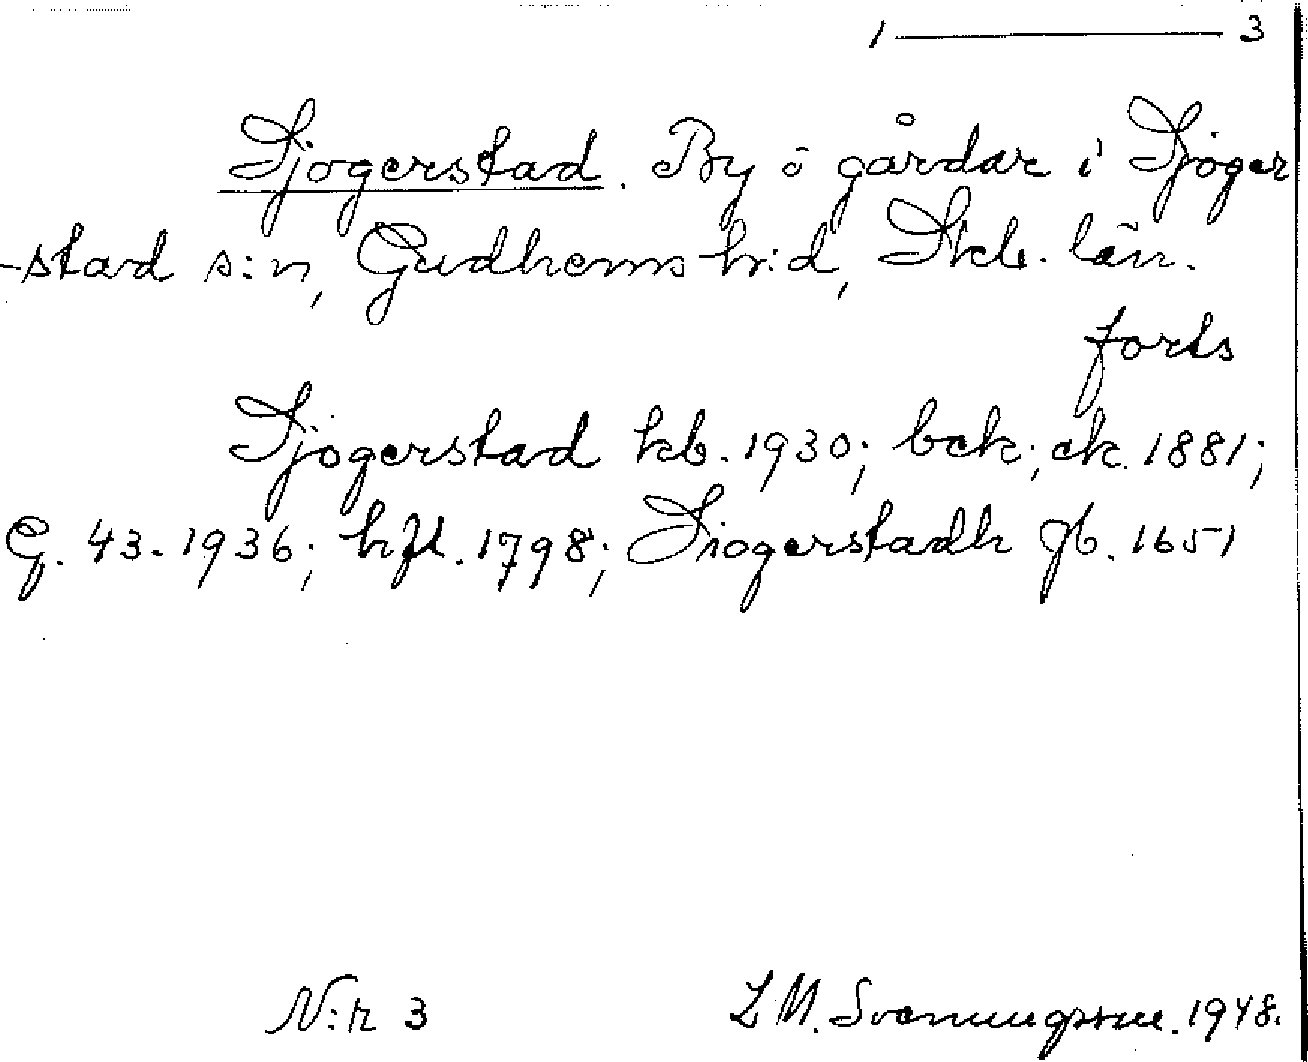 1 ——— 3
Sjogerstad. By o gårdar i Sjoger
-stad s:n, Gudhems h:d, Skb. län.
forts
Sjogerstad kb. 1930; bek; ek. 1881;
G. 43-1936; hft. 1798; Siogerstadh Jb. 1651
N:r 3 L M. Svenungsson. 1948.